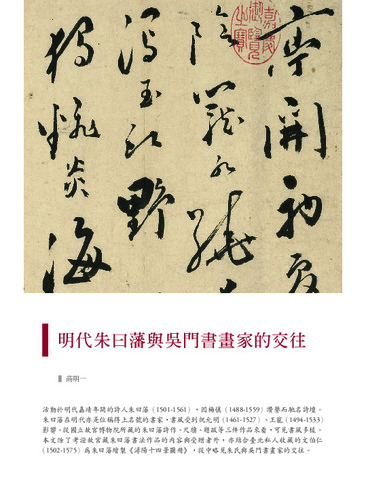 亭開
陰
玉 野
炎海
嘉慶御覽之寶
明代朱曰藩與吳門書畫家的交往
高明一
活動於明代嘉靖年間的詩人朱曰藩（1501-1561），因楊慎（1488-1559）讚譽而馳名詩壇。
朱曰藩在明代亦是位稱得上名號的書家，書風受到祝允明（1461-1527）、王寵（1494-1533）
影響。從國立故宮博物院所藏的朱曰藩詩作、尺牘、題跋等三件作品來看，可見書風多樣。
本文除了考證故宮藏朱曰藩書法作品的內容與受贈者外，亦結合臺北私人收藏的文伯仁
（1502-1575）為朱曰藩繪製《潯陽十四景圖冊》，從中略見朱氏與吳門書畫家的交往。